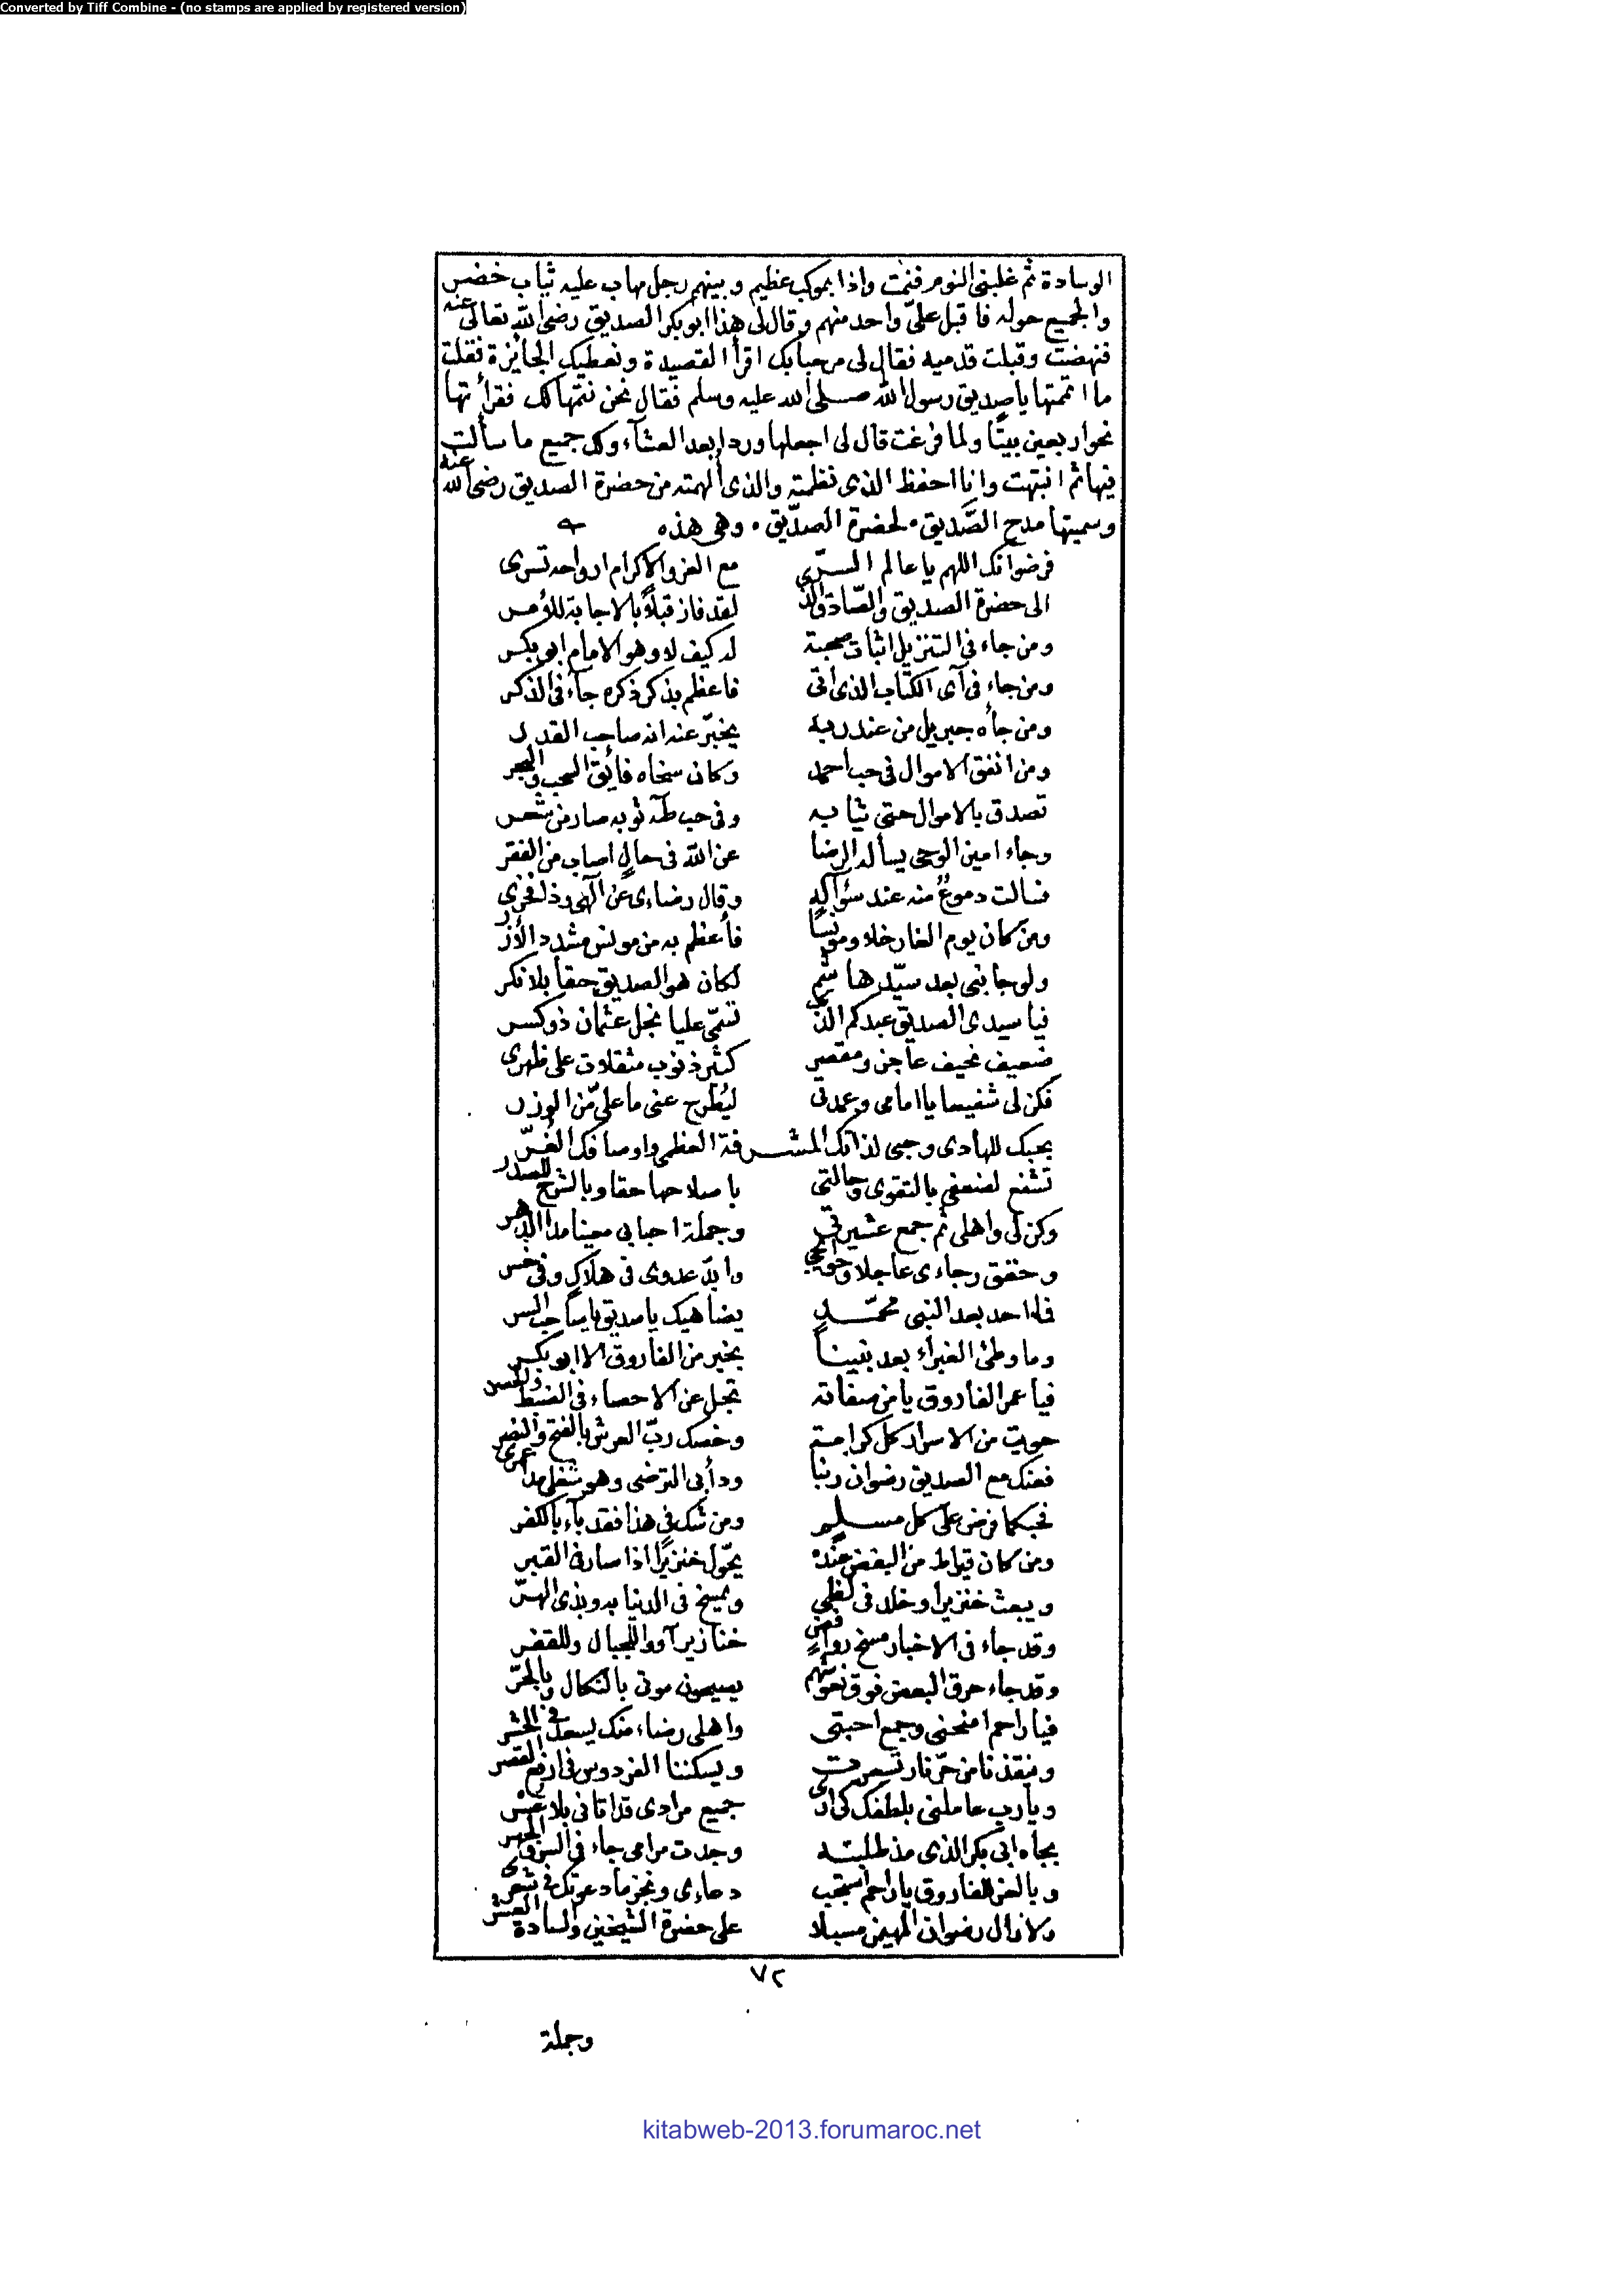 Converted by Tiff Combine - (no stamps are applied by registered version)
الوسادة ثم غلبنى النوم فنمت واذا بموكب عظيم وبينهم رجل مهاب عليه ثياب خضر
والجميع حوله فاقبل علىّ واحد منهم وقال لى هذا ابو بكر الصديق رضى الله تعالى عنه
فنهضت وقبلت قدميه فقال لى مرحبا بك اقرأ القصيدة ونعطيك الجائزة فقلت
ما اتممتها يا صديق رسول الله صلى الله عليه وسلم فقال نحن نتمها لك فقرأتها
نحو اربعين بيتا ولما فرغت قال لى اجعلها وردا بعد العشآء ولك جميع ما سألت
فيها ثم انتبهت وانا احفظ الذى نظمته والذى ألهمته من حضرة الصديق رضى الله عنه
وسميتها مدح الصديق • لحضرة الصدّيق • وهى هذه
فرضوانك اللهم يا عالم السرّى مع العز والاكرام ارواحه تسرى
الى حضرة الصديق والصّادق الذى لقد فاز قبلا بالاجابة للأمر
ومن جاء فى التنزيل اثبات صحبة له كيف لا وهو الامام ابو بكر
ومن جاء فى آى الكتاب الذى اتى فاعظم بذكر ذكره جآء فى الذكر
ومن جأه جبريل من عند ربه يخبّر عنه انه صاحب القدر
ومن انفق الاموال فى حب احمد وكان سخاه فائق السحب والبحر
تصدق بالاموال حتى ثيابه وفى حب طه ثوبه صار من شعر
وجاء امين الوحى يسأله الرضا عن الله فى حالٍ اصاب من الفقر
فسالت دموعٌ منه عند سؤاله وقال رضاءى عن آلهى وذا فخرى
ومن كان يوم الغار خلا ومونسا فأعظم به من مونس مشدد الأزر
ولو جا نبى بعد سيّد هاشم لكان هو الصديق حقا بلا نكر
فيا سيدى الصديق عبدكم الذى تسمّى عليا نجل عثمان ذو كسر
ضعيف نحيف عاجز ومقصر كثير ذنوب مثقلات على ظهرى
فكن لى شفيعا يا امامى وعمدتى ليُطرح عنى ما علىّ من الوزر
بحبك للهادى وحبى لذاتك المشرفة العظمى واوصافك الغُرّ
تشفع لضعفى بالتقوى وحالتى باصلاحها حقا وبالشرح للصدر
وكن لى واهلى ثم جمع عشيرتى وجملة احبابى معينا مدا الدهر
وحقق رجاءى عاجلا وحوائجى وابدّ عدوى فى هلاكٍ وفى خسر
فلا احد بعد النبى محمّدٍ يضاهيك يا صديق يا صاحب السر
وما وطئ الغبراء بعد نبينا بخير من الفاروق الا ابو بكر
فيا عمر الفاروق يا من صفاته تجل عن الاحصاء فى الضبط والحصر
حويت من الاسرار كل كرامة وخصك ربّ العرش بالفتح والنصر
فعنك مع الصديق رضوان ربنا ودأبى الترضى وهو شغلى مدا عمرى
فحبكما فرض على كل مسلم ومن شك فى هذا فقد باء بالكفر
ومن كان قيراط من البغض عنده يحّول خنزيرا اذا صار فى القبر
ويبعث خنزيرا وخلد فى لظى ويمسخ فى الدنيا
وقد جاء فى الاخبار مسخ روافض خنازير آووا للجبال وللقفر
وقد جاء حرق البعض فوق نعوشهم موتى بالنكال وبالحرّ
فيا راحما امنحنى وجمع احبتى واهلى رضاء منك يسعد فى الحشر
ومنقذنا من حرّ نار تسعرت ويسكننا الفردوس فى ارفع القصر
ويا رب عاملنى بلطفك كى ارى جميع مرادى قد اتانى بلا عسر
بجاه ابى بكر الذى مذ طلبته وجدت مرامى جاء فى السر والجهر
وبالعز للفاروق يا راحم استجب دعاءى ونجز ما دعوتك فى شعرى
ولا زال رضوان المهيمن مسبلا على حضرة الشيخين والسادة العشر
٧٢
وجملة
kitabweb-2013.forumaroc.net